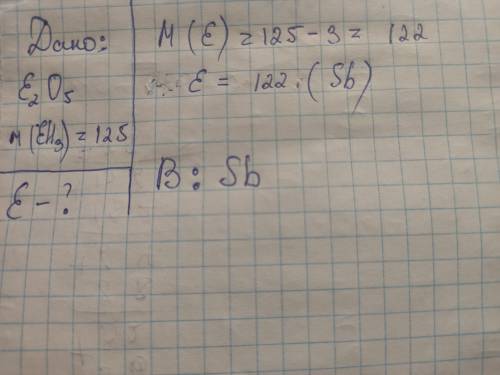 Дано:
E₂O₅
M(EH₃) = 125
E - ?
M(E) = 125 - 3 = 122
E = 122. (Sb)
В: Sb